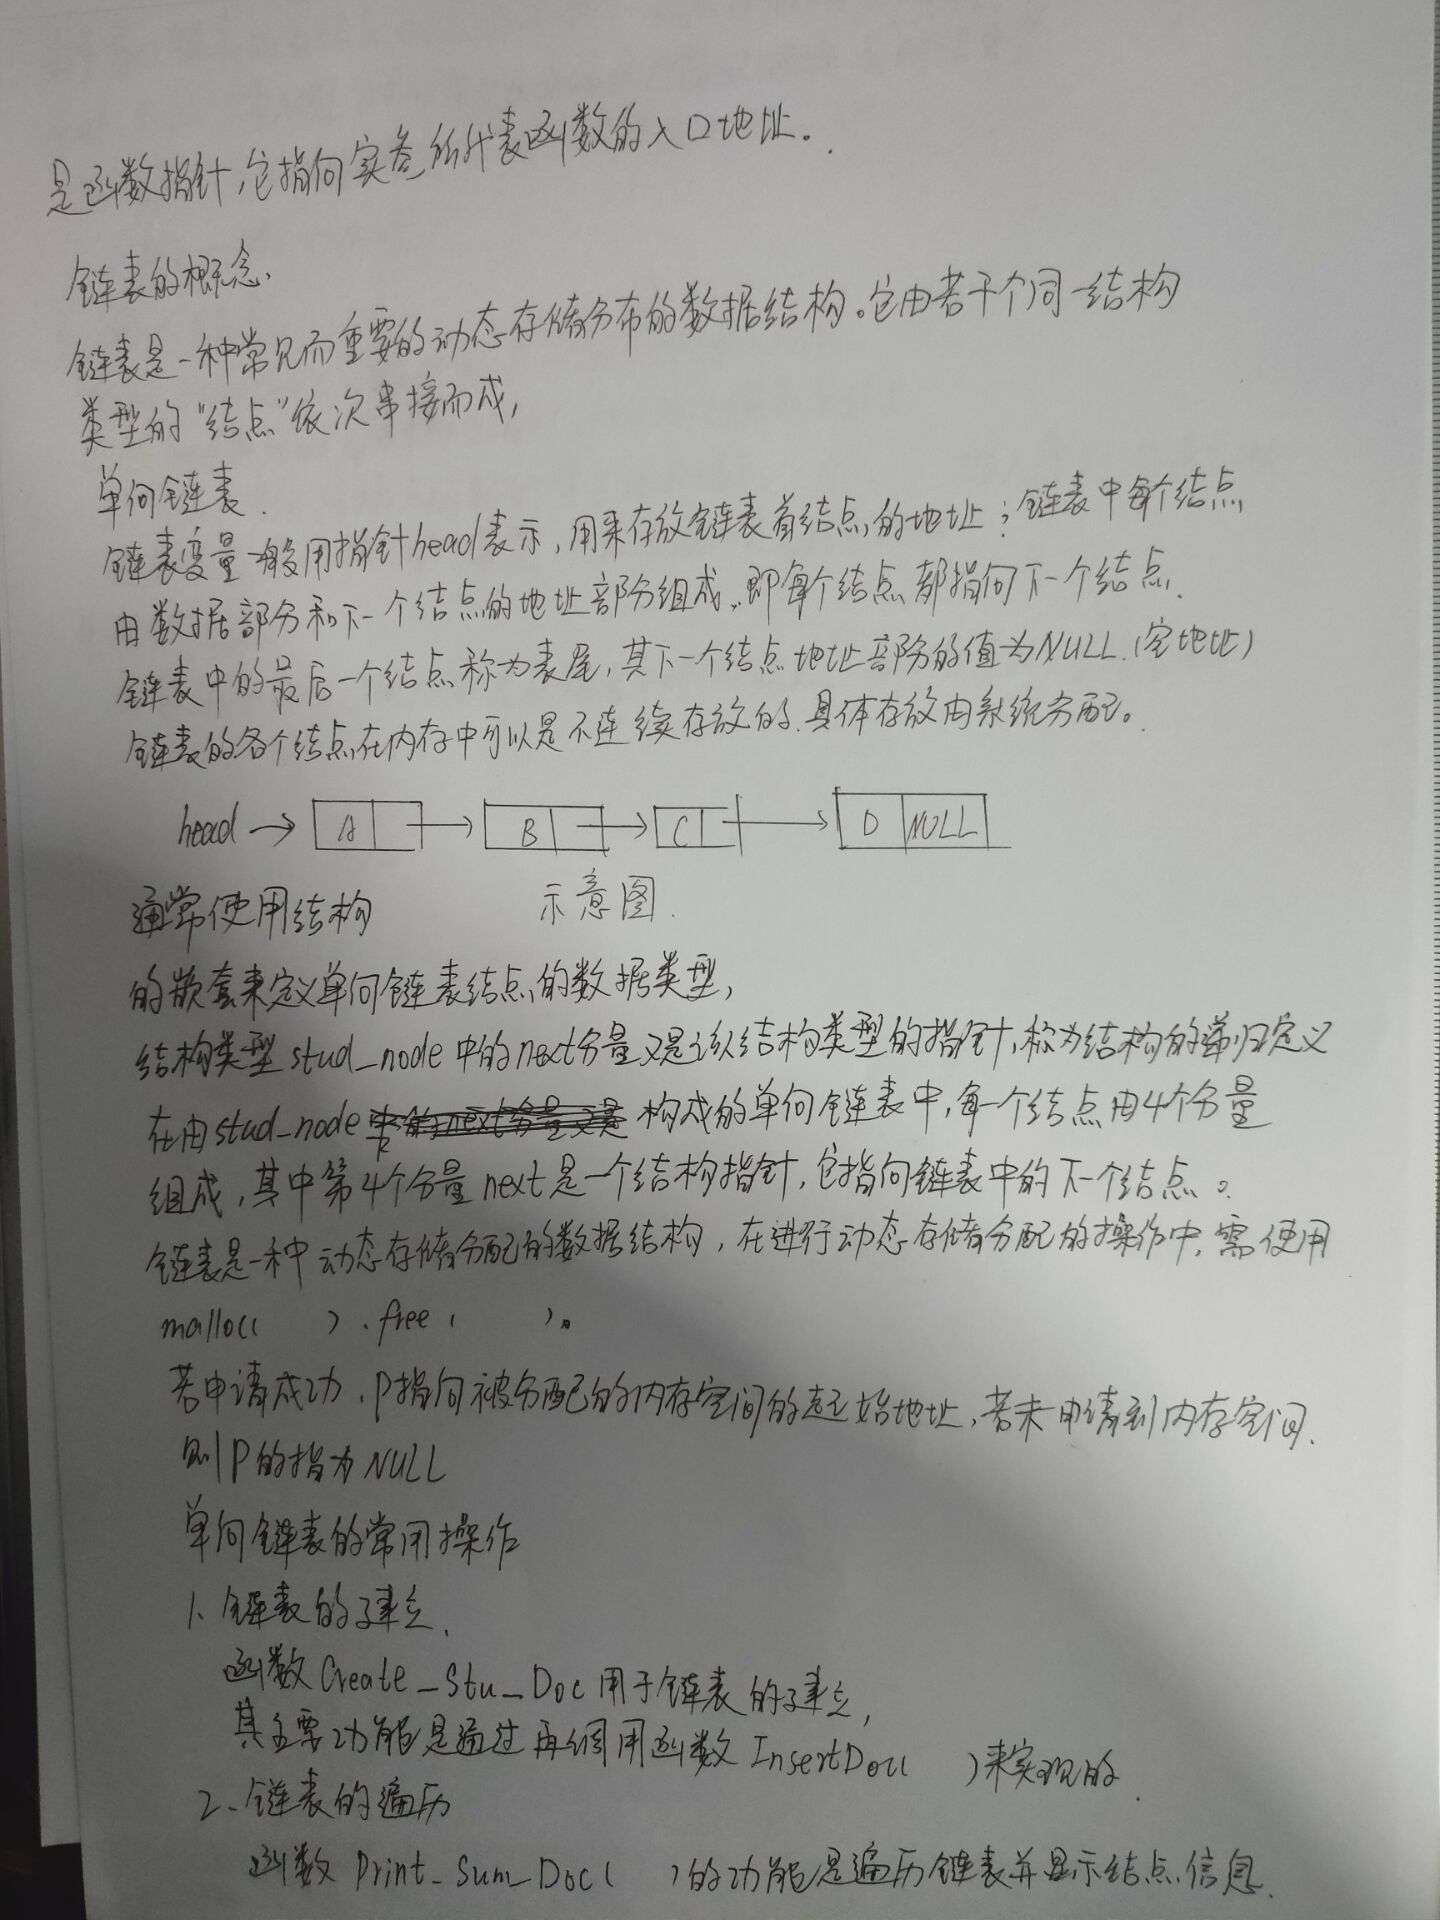 是函数指针,它指向实参所代表函数的入口地址.
链表的概念、
链表是一种常见而重要的动态存储分布的数据结构。它由若干个同一结构
类型的"结点"依次串接而成,
单向链表.
链表变量一般用指针head表示,用来存放链表首结点的地址;链表中每个结点
由数据部分和下一个结点的地址部分组成.即每个结点都指向下一个结点.
链表中的最后一个结点称为表尾,其下一个结点地址部分的值为NULL.(空地址)
链表的各个结点在内存中可以是不连续存放的.具体存放由系统分配。
head → A B C D NULL
通常使用结构 示意图.
的嵌套来定义单向链表结点的数据类型,
结构类型 stud_node 中的next分量又是该结构类型的指针,称为结构的递归定义
在由stud_node 中的next分量又是 构成的单向链表中,每一个结点由4个分量
组成,其中第4个分量 next是一个结构指针,它指向链表中的下一个结点。
链表是一种动态存储分配的数据结构,在进行动态存储分配的操作中,需使用
malloc( )、free( )。
若申请成功,P指向被分配的内存空间的起始地址,若未申请到内存空间.
则P的指为NULL
单向链表的常用操作
1、链表的建立、
函数 Create_Stu_Doc 用于链表的建立,
其主要功能是通过再调用函数 InsertDoc( )来实现的.
2、链表的遍历
函数 Print_Sum_Doc( )的功能是遍历链表并显示结点信息.